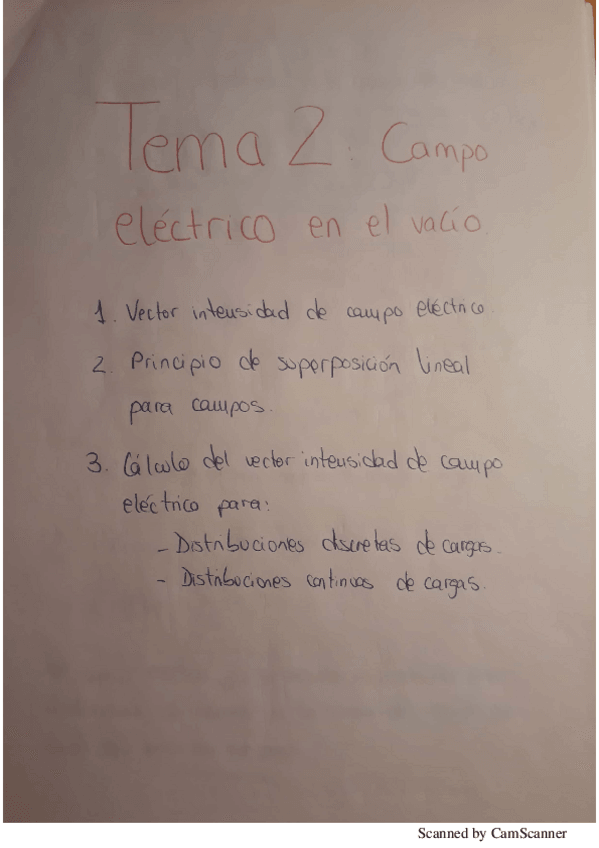 Tema 2: Campo
eléctrico en el vacío.
1. Vector intensidad de campo eléctrico.
2. Principio de superposición lineal
para campos.
3. Cálculo del vector intensidad de campo
eléctrico para:
- Distribuciones discretas de cargas.
- Distribuciones continuas de cargas.
Scanned by CamScanner